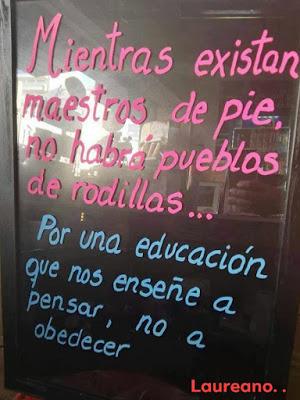 Mientras existan
maestros de pie,
no habrá pueblos
de rodillas...
Por una educación
que nos enseñe a
pensar, no a
obedecer
Laureano. .